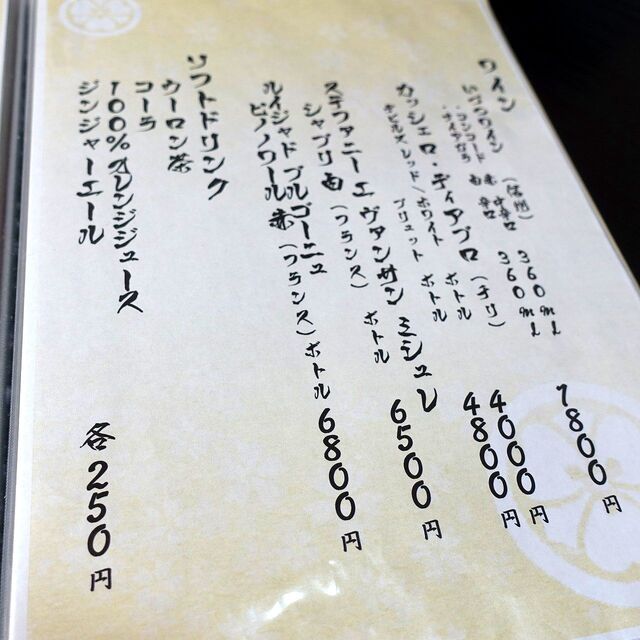 ワイン
いづつワイン (信州)
・コンコード 赤 中辛口 360ml
・ナイヤガラ 白 辛口 360ml 1800円
カッシェロ・ディアブロ (チリ)
ボトル 4000円
ブリュット ボトル 4800円
ステファニーエ ヴァンサン ミシュレ
シャブリ 白 (フランス) ボトル 6500円
ルイジャド ブルゴーニュ
ピノノワール 赤 (フランス) ボトル 6800円
ソフトドリンク
ウーロン茶
コーラ
100%オレンジジュース
ジンジャーエール 各250円